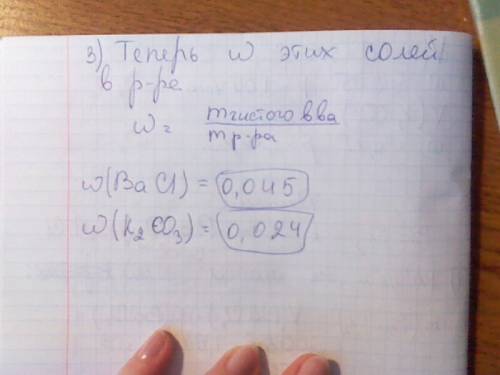 3) Теперь w этих солей
в р-ре
w = mчистого вва
mр-ра
w(BaCl) = 0,045
w(K₂CO₃) = 0,024